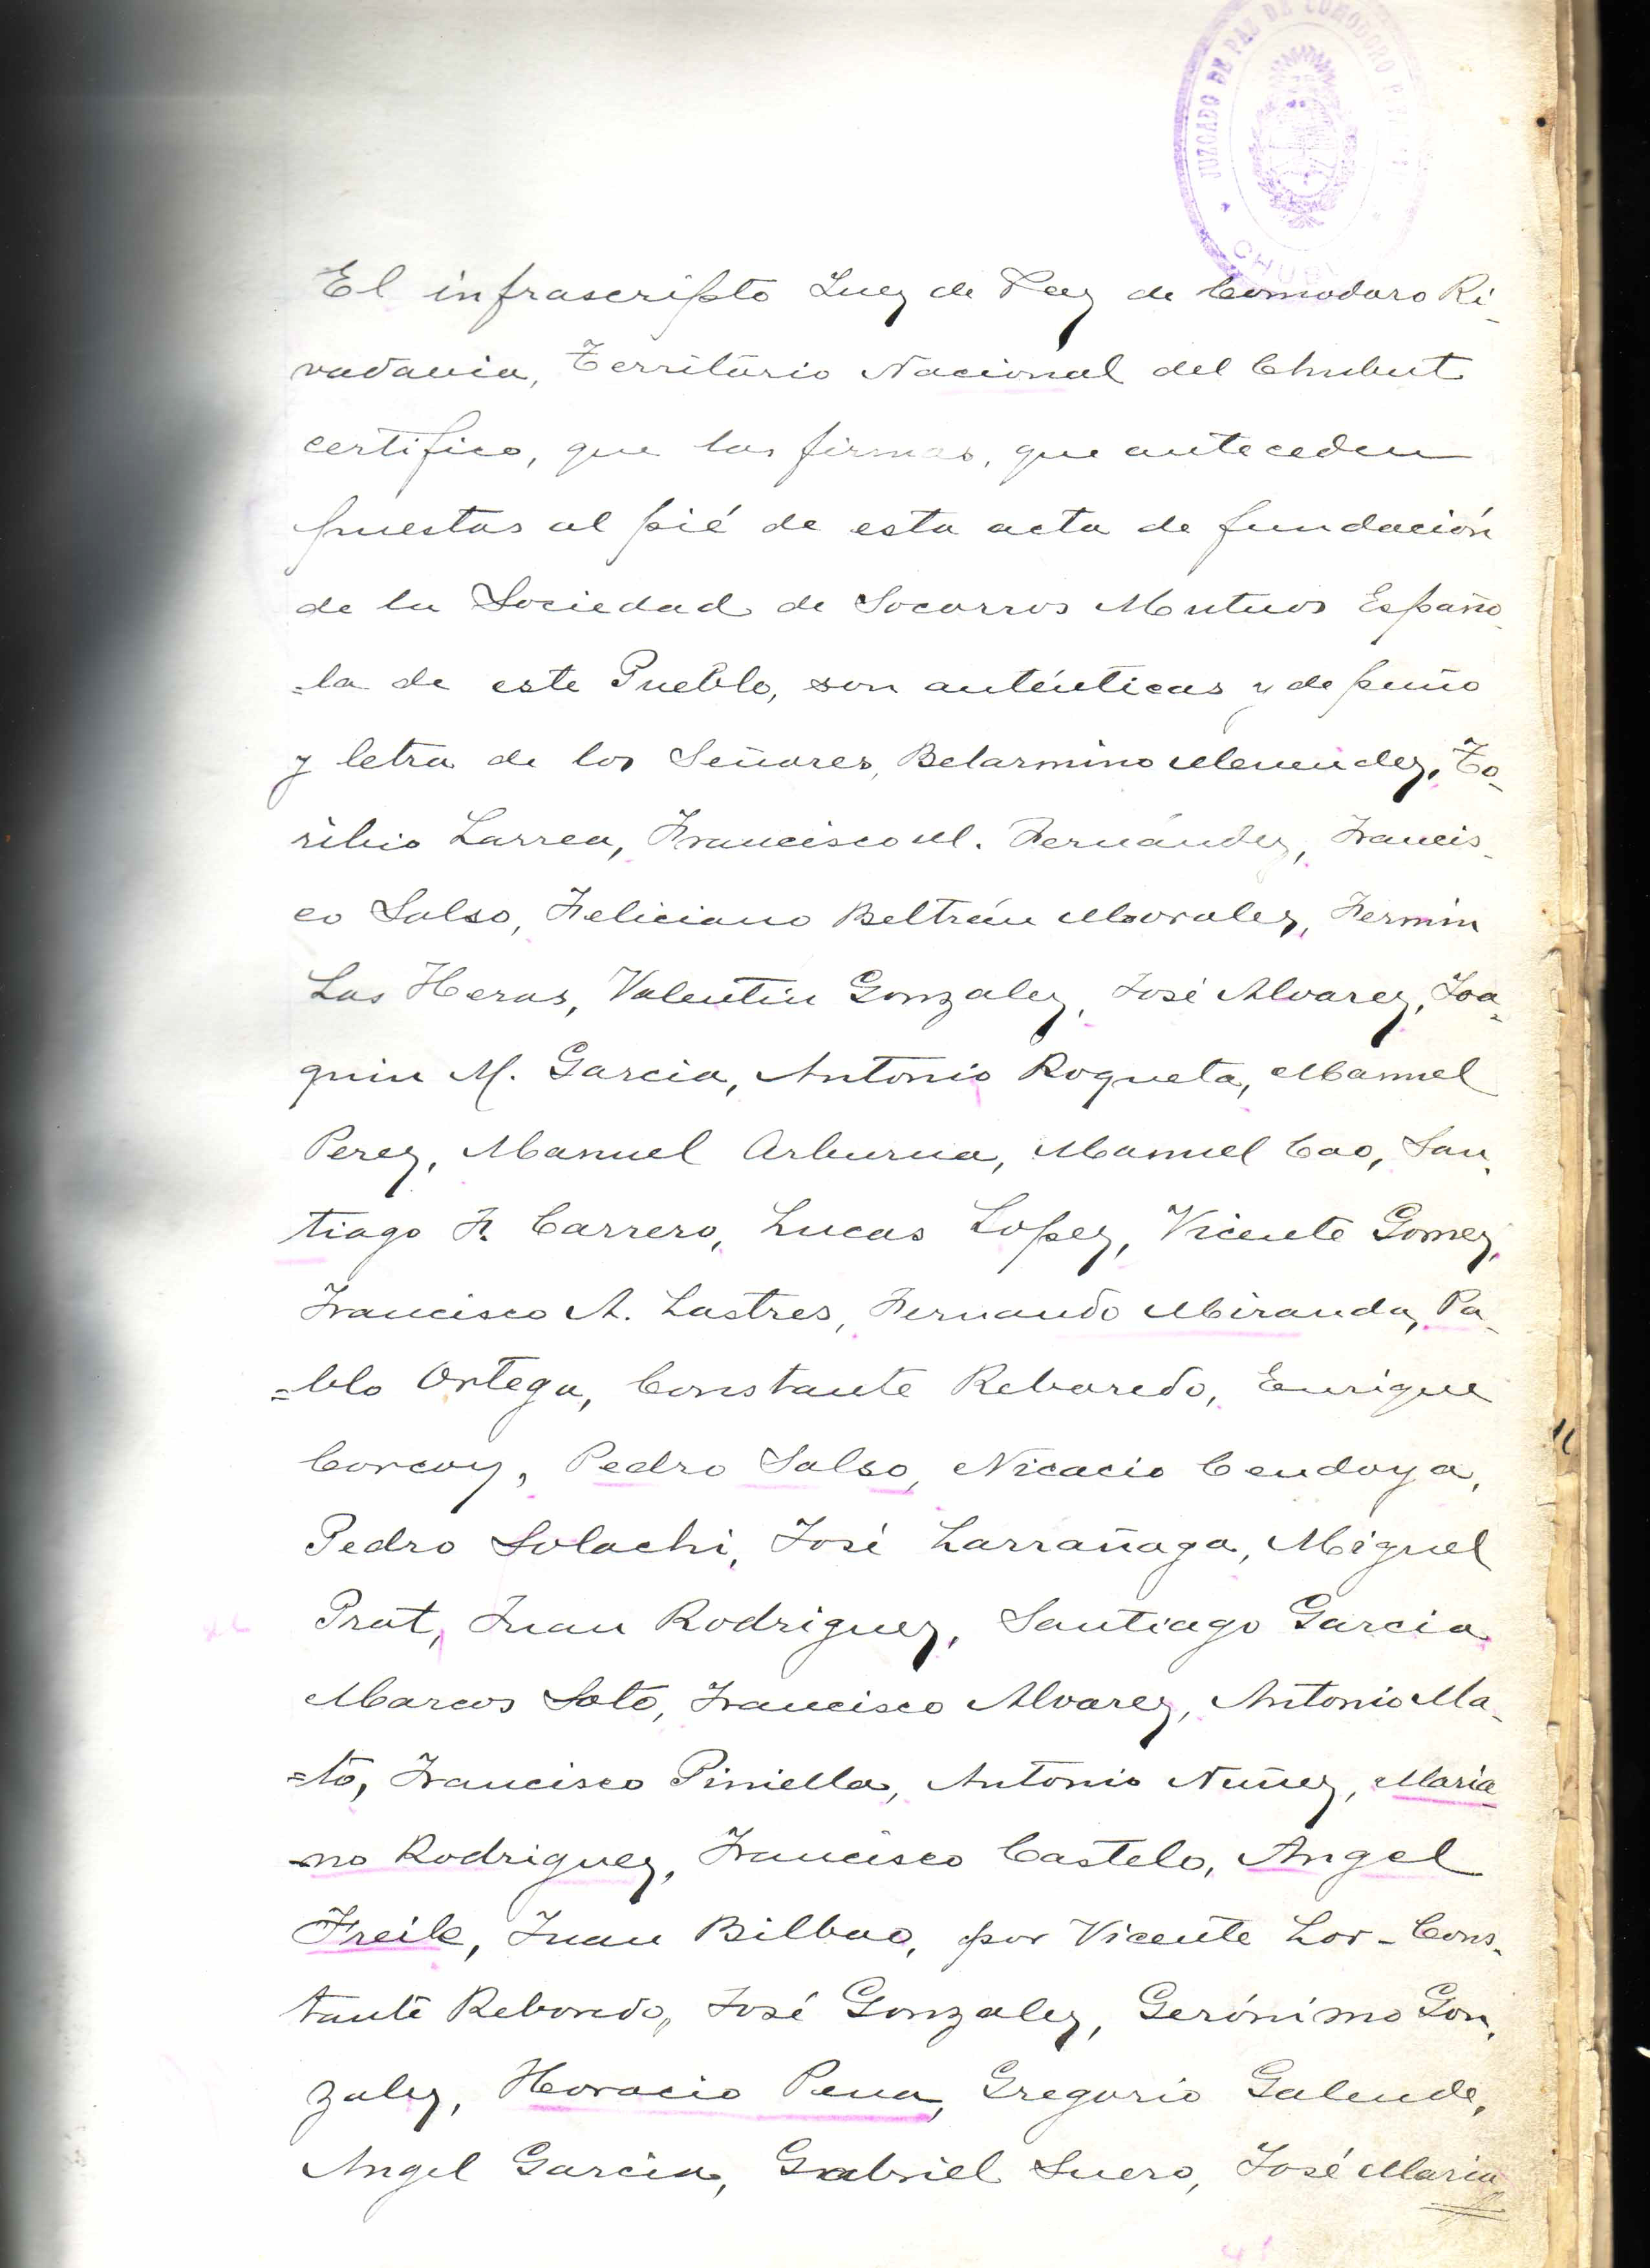 JUZGADO DE PAZ DE COMODORO
CHUBUT
El infrascripto Juez de Paz de Comodoro Ri-
vadavia, Territorio Nacional del Chubut
certifico, que las firmas, que anteceden
puestas al pié de esta acta de fundación
de la Sociedad de Socorros Mutuos Españo-
=la de este Pueblo, son auténticas y de puño
y letra de los Señores, Belarmino Menendez, To-
ribio Larrea, Francisco M. Fernández, Francis-
co Salso, Feliciano Beltrán Morales, Fermin
Las Heras, Valentin Gonzalez, José Alvarez, Joa-
quin M. Garcia, Antonio Roqueta, Manuel
Perez, Manuel Arburua, Manuel Cao, San-
tiago F. Carrero, Lucas Lopez, Vicente Gomez,
Francisco A. Lastres, Fernando Miranda, Pa-
=blo Ortega, Constante Reboredo, Enrique
Corcoy, Pedro Salso, Nicacio Cendoya,
Pedro Solachi, José Larrañaga, Miguel
Prat, Juan Rodriguez, Santiago Garcia
Marcos Soto, Francisco Alvarez, Antonio Ma-
=to, Francisco Piniella, Antonio Nuñez, Maria
-no Rodriguez, Francisco Castelo, Angel
Freile, Juan Bilbao, por Vicente Lor - Cons-
tante Reboredo, José Gonzalez, Gerónimo Gon-
zalez, Horacio Pena, Gregorio Galende,
Angel Garcia, Gabriel Suero, José Maria